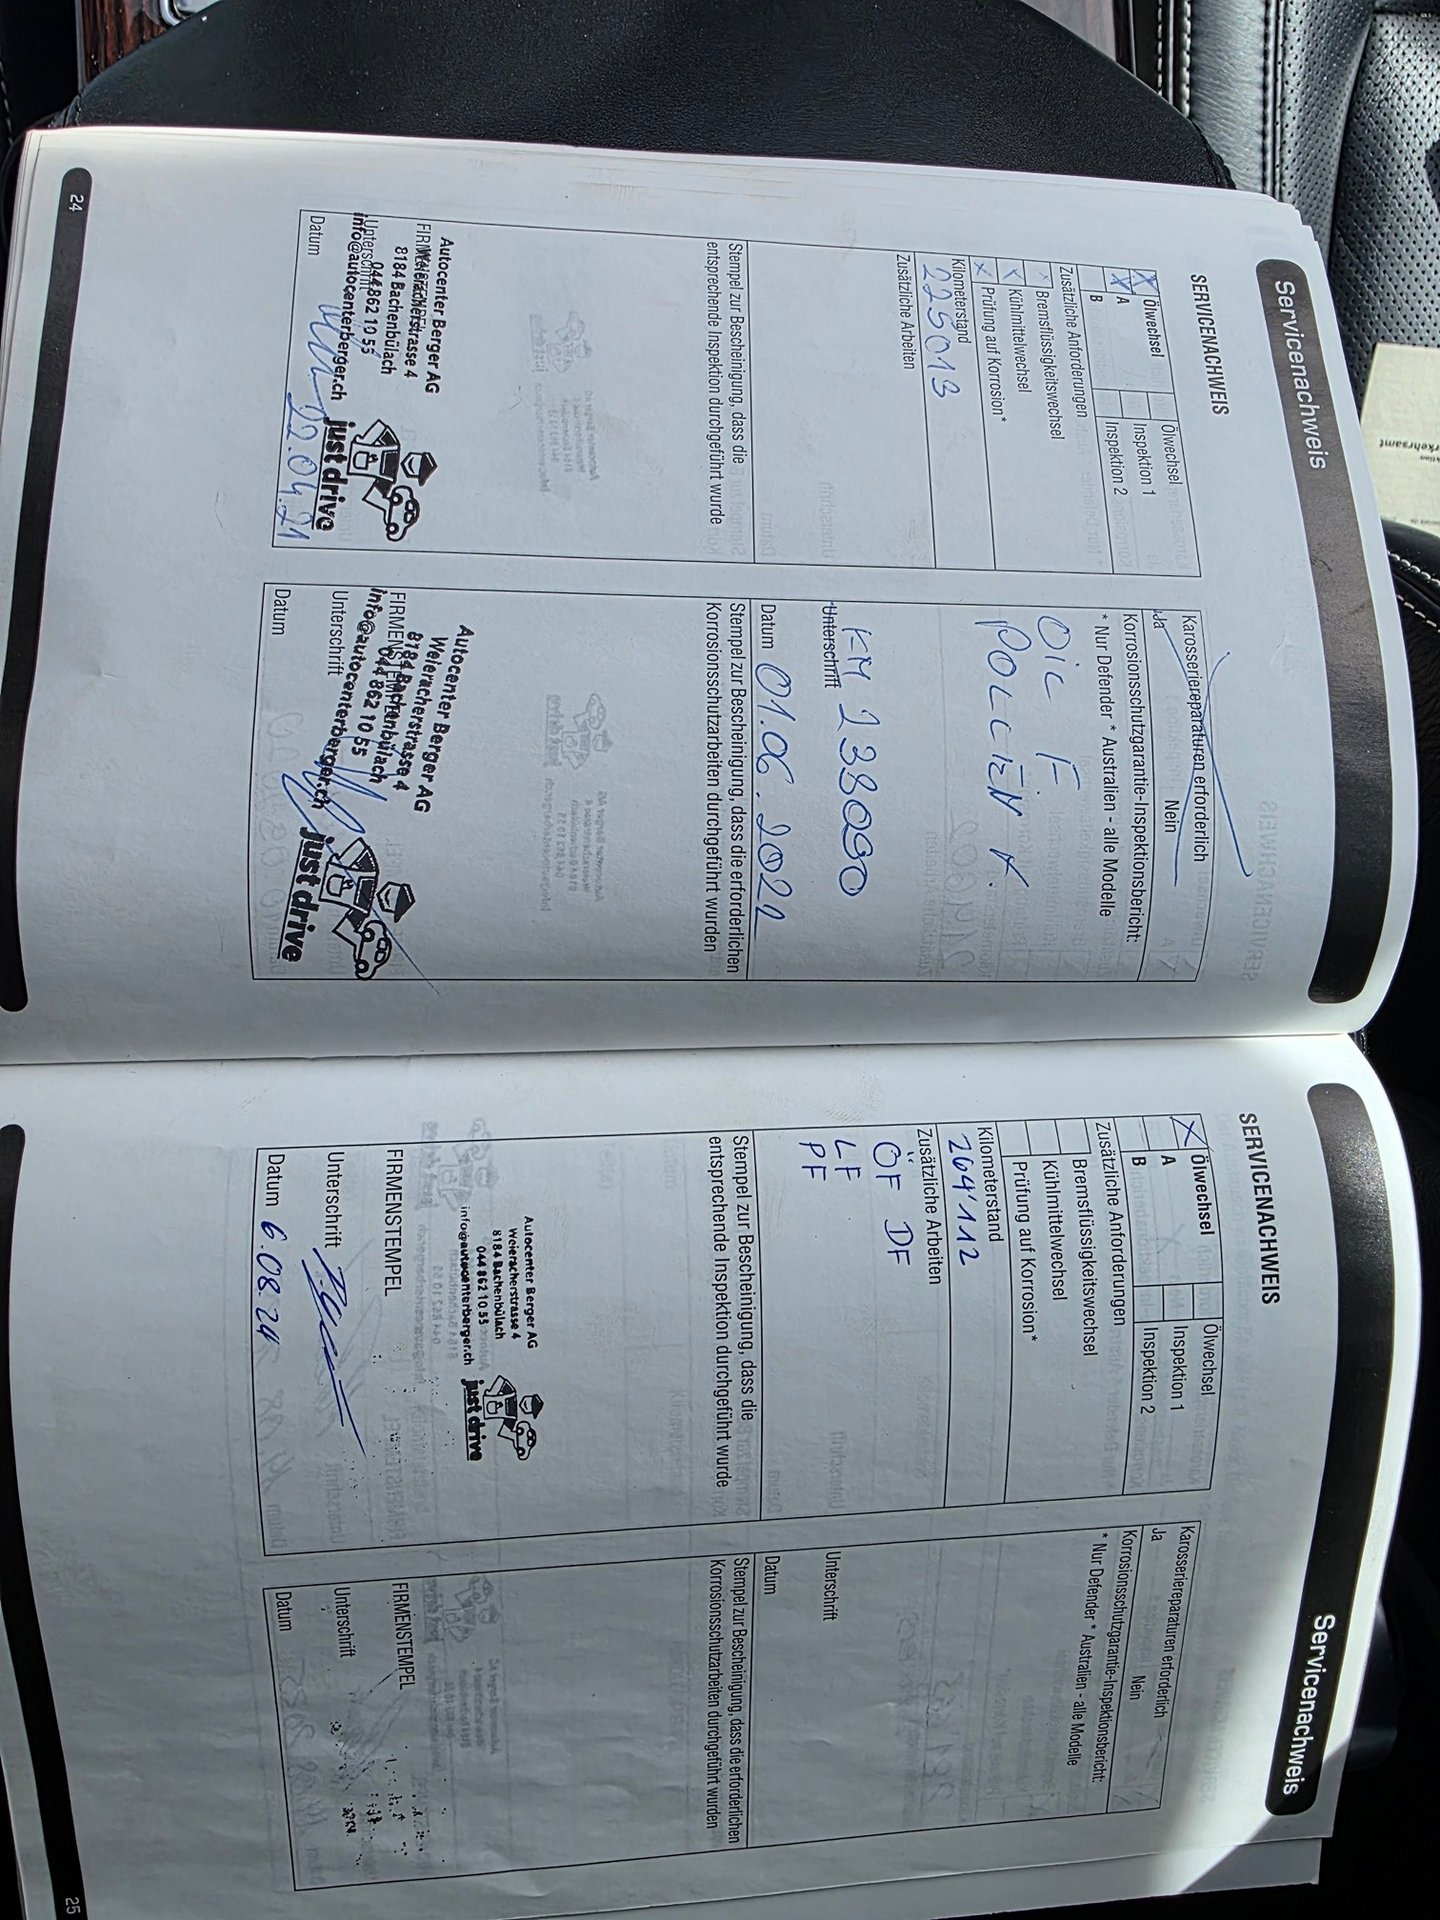 Servicenachweis
SERVICENACHWEIS
Ölwechsel Ölwechsel
A Inspektion 1
B Inspektion 2
Zusätzliche Anforderungen
Bremsflüssigkeitswechsel
Kühlmittelwechsel
Prüfung auf Korrosion*
Kilometerstand
225013
Zusätzliche Arbeiten
Stempel zur Bescheinigung, dass die
entsprechende Inspektion durchgeführt wurde
Autocenter Berger AG
Weieracherstrasse 4
8184 Bachenbülach
044 862 10 55
info@autocenterberger.ch
just drive
FIRMENSTEMPEL
Unterschrift
Datum 22.04.21
24
Karosseriereparaturen erforderlich
Ja Nein
Korrosionsschutzgarantie-Inspektionsbericht:
* Nur Defender * Australien - alle Modelle
OIL F
POLLEN
KM
Unterschrift
Datum 01.06.2022
Stempel zur Bescheinigung, dass die erforderlichen
Korrosionsschutzarbeiten durchgeführt wurden
Autocenter Berger AG
Weieracherstrasse 4
8184 Bachenbülach
044 862 10 55
info@autocenterberger.ch
just drive
FIRMENSTEMPEL
Unterschrift
Datum
Servicenachweis
SERVICENACHWEIS
Ölwechsel Ölwechsel
A Inspektion 1
B Inspektion 2
Zusätzliche Anforderungen
Bremsflüssigkeitswechsel
Kühlmittelwechsel
Prüfung auf Korrosion*
Kilometerstand
264'112
Zusätzliche Arbeiten
ÖF DF
LF
PF
Stempel zur Bescheinigung, dass die
entsprechende Inspektion durchgeführt wurde
Autocenter Berger AG
Weieracherstrasse 4
8184 Bachenbülach
044 862 10 55
info@autocenterberger.ch
just drive
FIRMENSTEMPEL
Unterschrift
Datum 6.08.24
Karosseriereparaturen erforderlich
Ja Nein
Korrosionsschutzgarantie-Inspektionsbericht:
* Nur Defender * Australien - alle Modelle
Unterschrift
Datum
Stempel zur Bescheinigung, dass die erforderlichen
Korrosionsschutzarbeiten durchgeführt wurden
FIRMENSTEMPEL
Unterschrift
Datum
25